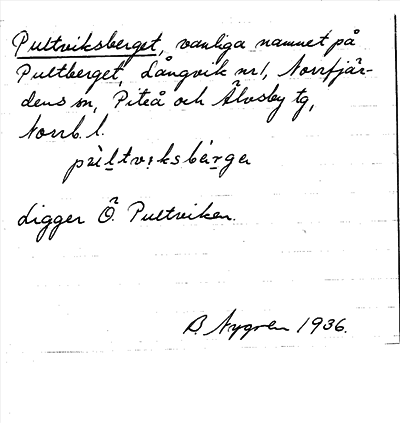 Pultviksberget, vanliga namnet på
Pultberget, Långvik nr 1, Norrfjär-
dens sn, Piteå och Älvsby tg,
Norrb. l.
Ligger Ö. Pultviken.
B. Nygren 1936.